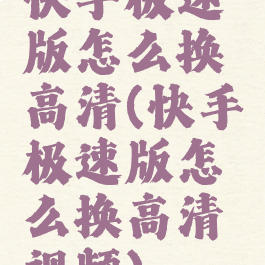 快手极速
版怎么换
高清(快手
极速版怎
么换高清
视频)